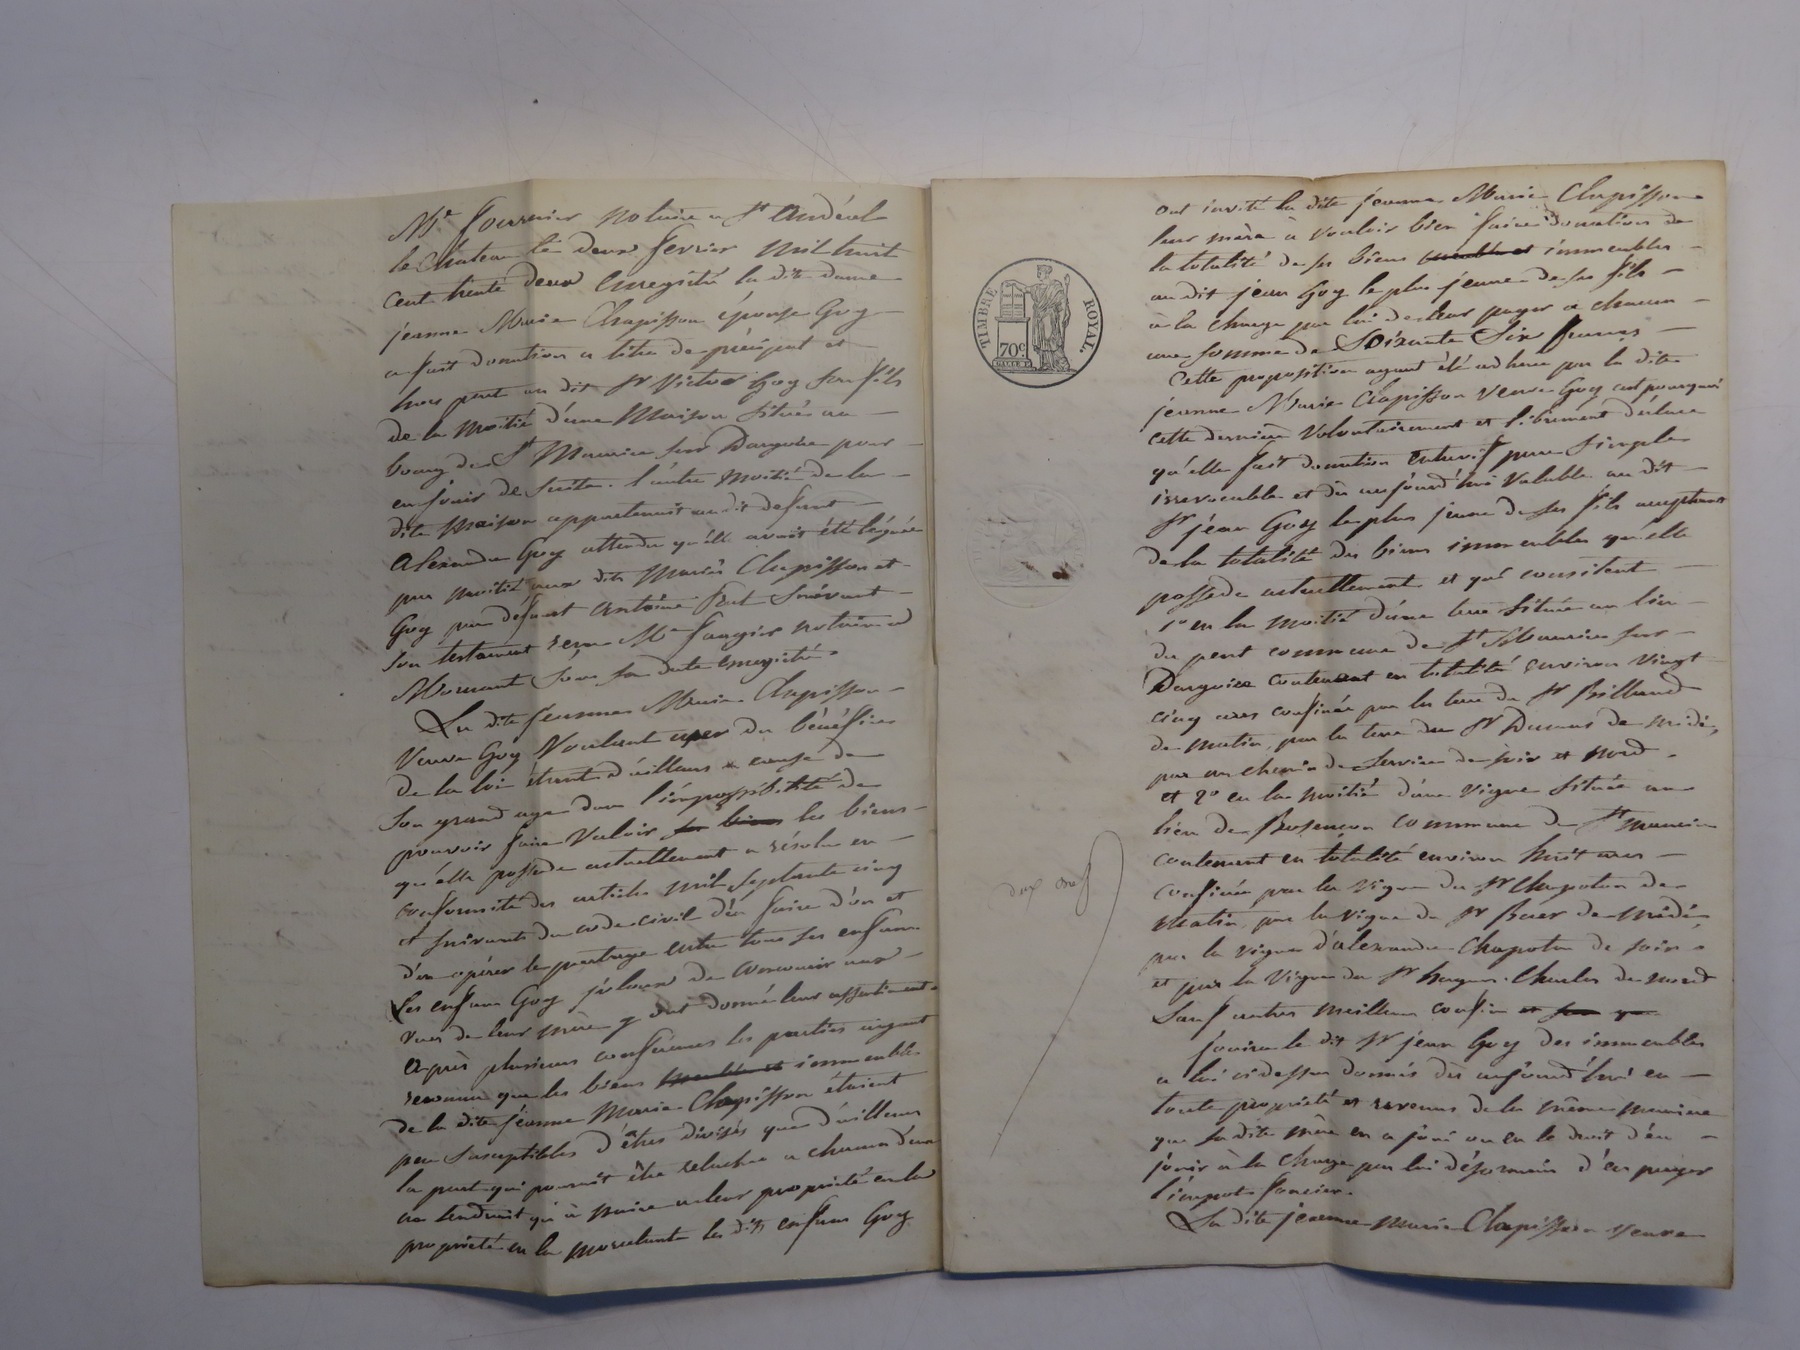 Me fournier notaire a St andéol
le Château le deux fevrier mil huit
cent trente deux enregistré la dite dame
jeanne Marie Chapisson épouse Goy
a fait donation a titre de préciput et
hors part au dit Sr Victor Goy son fils
de la moitié d'une Maison située au
bourg de St Maurice sur Dargoire pour
en jouir de suite. l'autre moitié de la
dite maison appartenait au dit defunt
Alexandre Goy attendu qu'elle avait été léguée
par moitié aux dits Mariés Chapisson et
Goy par défunt antoine suivant
son testament reçu Me faugier notaire a
Mornant sous sa date enregistré.
La dite jeanne Marie Chapisson
Veuve Goy Voulant user du bénéfice
de la loi étant d'ailleurs a cause de
son grand age dans l'impossibilité de
pouvoir faire valoir ses biens les biens
qu'elle possede actuellement a résolu en
conformité des articles mil septante cinq
et suivants du code civil d'en faire d'or et
d'en opérer le partage entre tous ses enfans.
Les enfans Goy jaloux de concourir aux
vues de leur mère y ont donné leur assentiment
après plusieurs conférences les parties ayant
reconnu que les biens meubles et immeubles
de la dite jeanne Marie Chapisson étaient
peu susceptibles d'êtres divisés que d'ailleurs
la part qui pourrait être relachée a chacun d'eux
ne tendrait qu'à nuire a leur propriété en la
propriété en la morcelant les dits enfans Goy
TIMBRE ROYAL.
70c
ont invité la dite jeanne Marie Chapisson
leur mère à vouloir bien faire donation de
la totalité de ses biens meubles et immeubles
au dit jean Goy le plus jeune de ses fils
à la charge par lui de leur payer a chacun
une somme de Soixante Six francs
Cette proposition ayant été admise par la dite
jeanne Marie Clapisson veuve Goy cest pourquoi
cette dernière Volontairement et librement déclare
qu'elle fait donation entrevif pure simple
irrevocable et dès aujourd'hui Valable au dit
Sr jean Goy le plus jeune de ses fils acceptant
de la totalité des biens immeubles qu'elle
possede actuellement et qui consistent
1o en la moitié d'une terre située au lieu
du pent commune de St Maurice sur
Dargoire contenant en totalité environ vingt
cinq ares confinée par la terre de Sr Billaud
de matin, par la terre du Sr Dumas de midi,
par un chemin de service de soir et nord.
et 2o en la moitié d'une vigne située au
lieu de Rosençon commune de St maurice
contenant en totalité environ huit ares
confinée par la vigne du Sr Chapotun de
matin, par la vigne du Sr Baer de midi,
par la vigne d'alexandre Chapotun de soir,
et par la vigne du Sr Charles de nord
Sauf autres meilleurs confin
jouira le dit Sr jean Goy des immeubles
a lui cidessus donnés dès aujourd'hui en
toute propriété et revenus de la même maniere
que sa dite mère en a joui ou eu le droit d'en
jouir à la charge par lui désormais d'en payer
l'impot foncier.
La dite jeanne marie Clapisson veuve